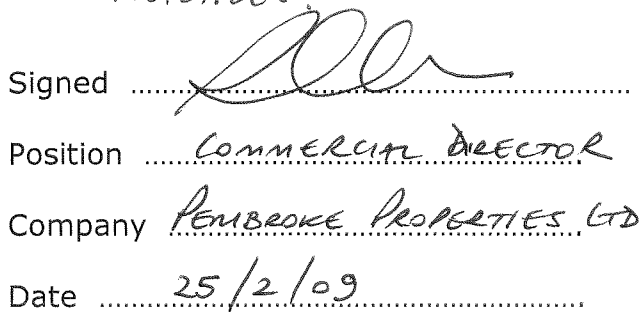 Signed
Position COMMERCIAL DIRECTOR
Company PEMBROKE PROPERTIES LTD
Date 25/2/09